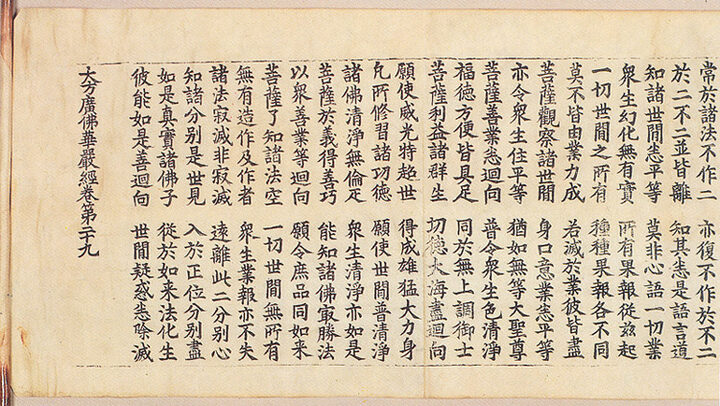 常於諸法不作二 亦復不作於不二
於二不二並皆離 知其悉是語言道
知諸世間悉平等 莫非心語一切業
衆生幻化無有實 所有果報從茲起
一切世間之所有 種種果報各不同
莫不皆由業力成 若滅於業彼皆盡
菩薩觀察諸世間 身口意業悉平等
亦令衆生住平等 猶如無等大聖尊
菩薩善業悉迴向 普令衆生色清淨
福德方便皆具足 同於無上調御士
菩薩利益諸群生 功德大海盡迴向
願使威光特超世 得成雄猛大力身
凡所修習諸功德 願使世間普清淨
諸佛清淨無倫疋 衆生清淨亦如是
菩薩於義得善巧 能知諸佛㝡勝法
以衆善業等迴向 願令庶品同如來
菩薩了知諸法空 一切世間無所有
無有造作及作者 衆生業報亦不失
諸法寂滅非寂滅 遠離此二分別心
知諸分別是世見 入於正位分別盡
如是真實諸佛子 從於如来法化生
彼能如是善迴向 世間疑惑悉除滅
大方廣佛華嚴經卷第二十九